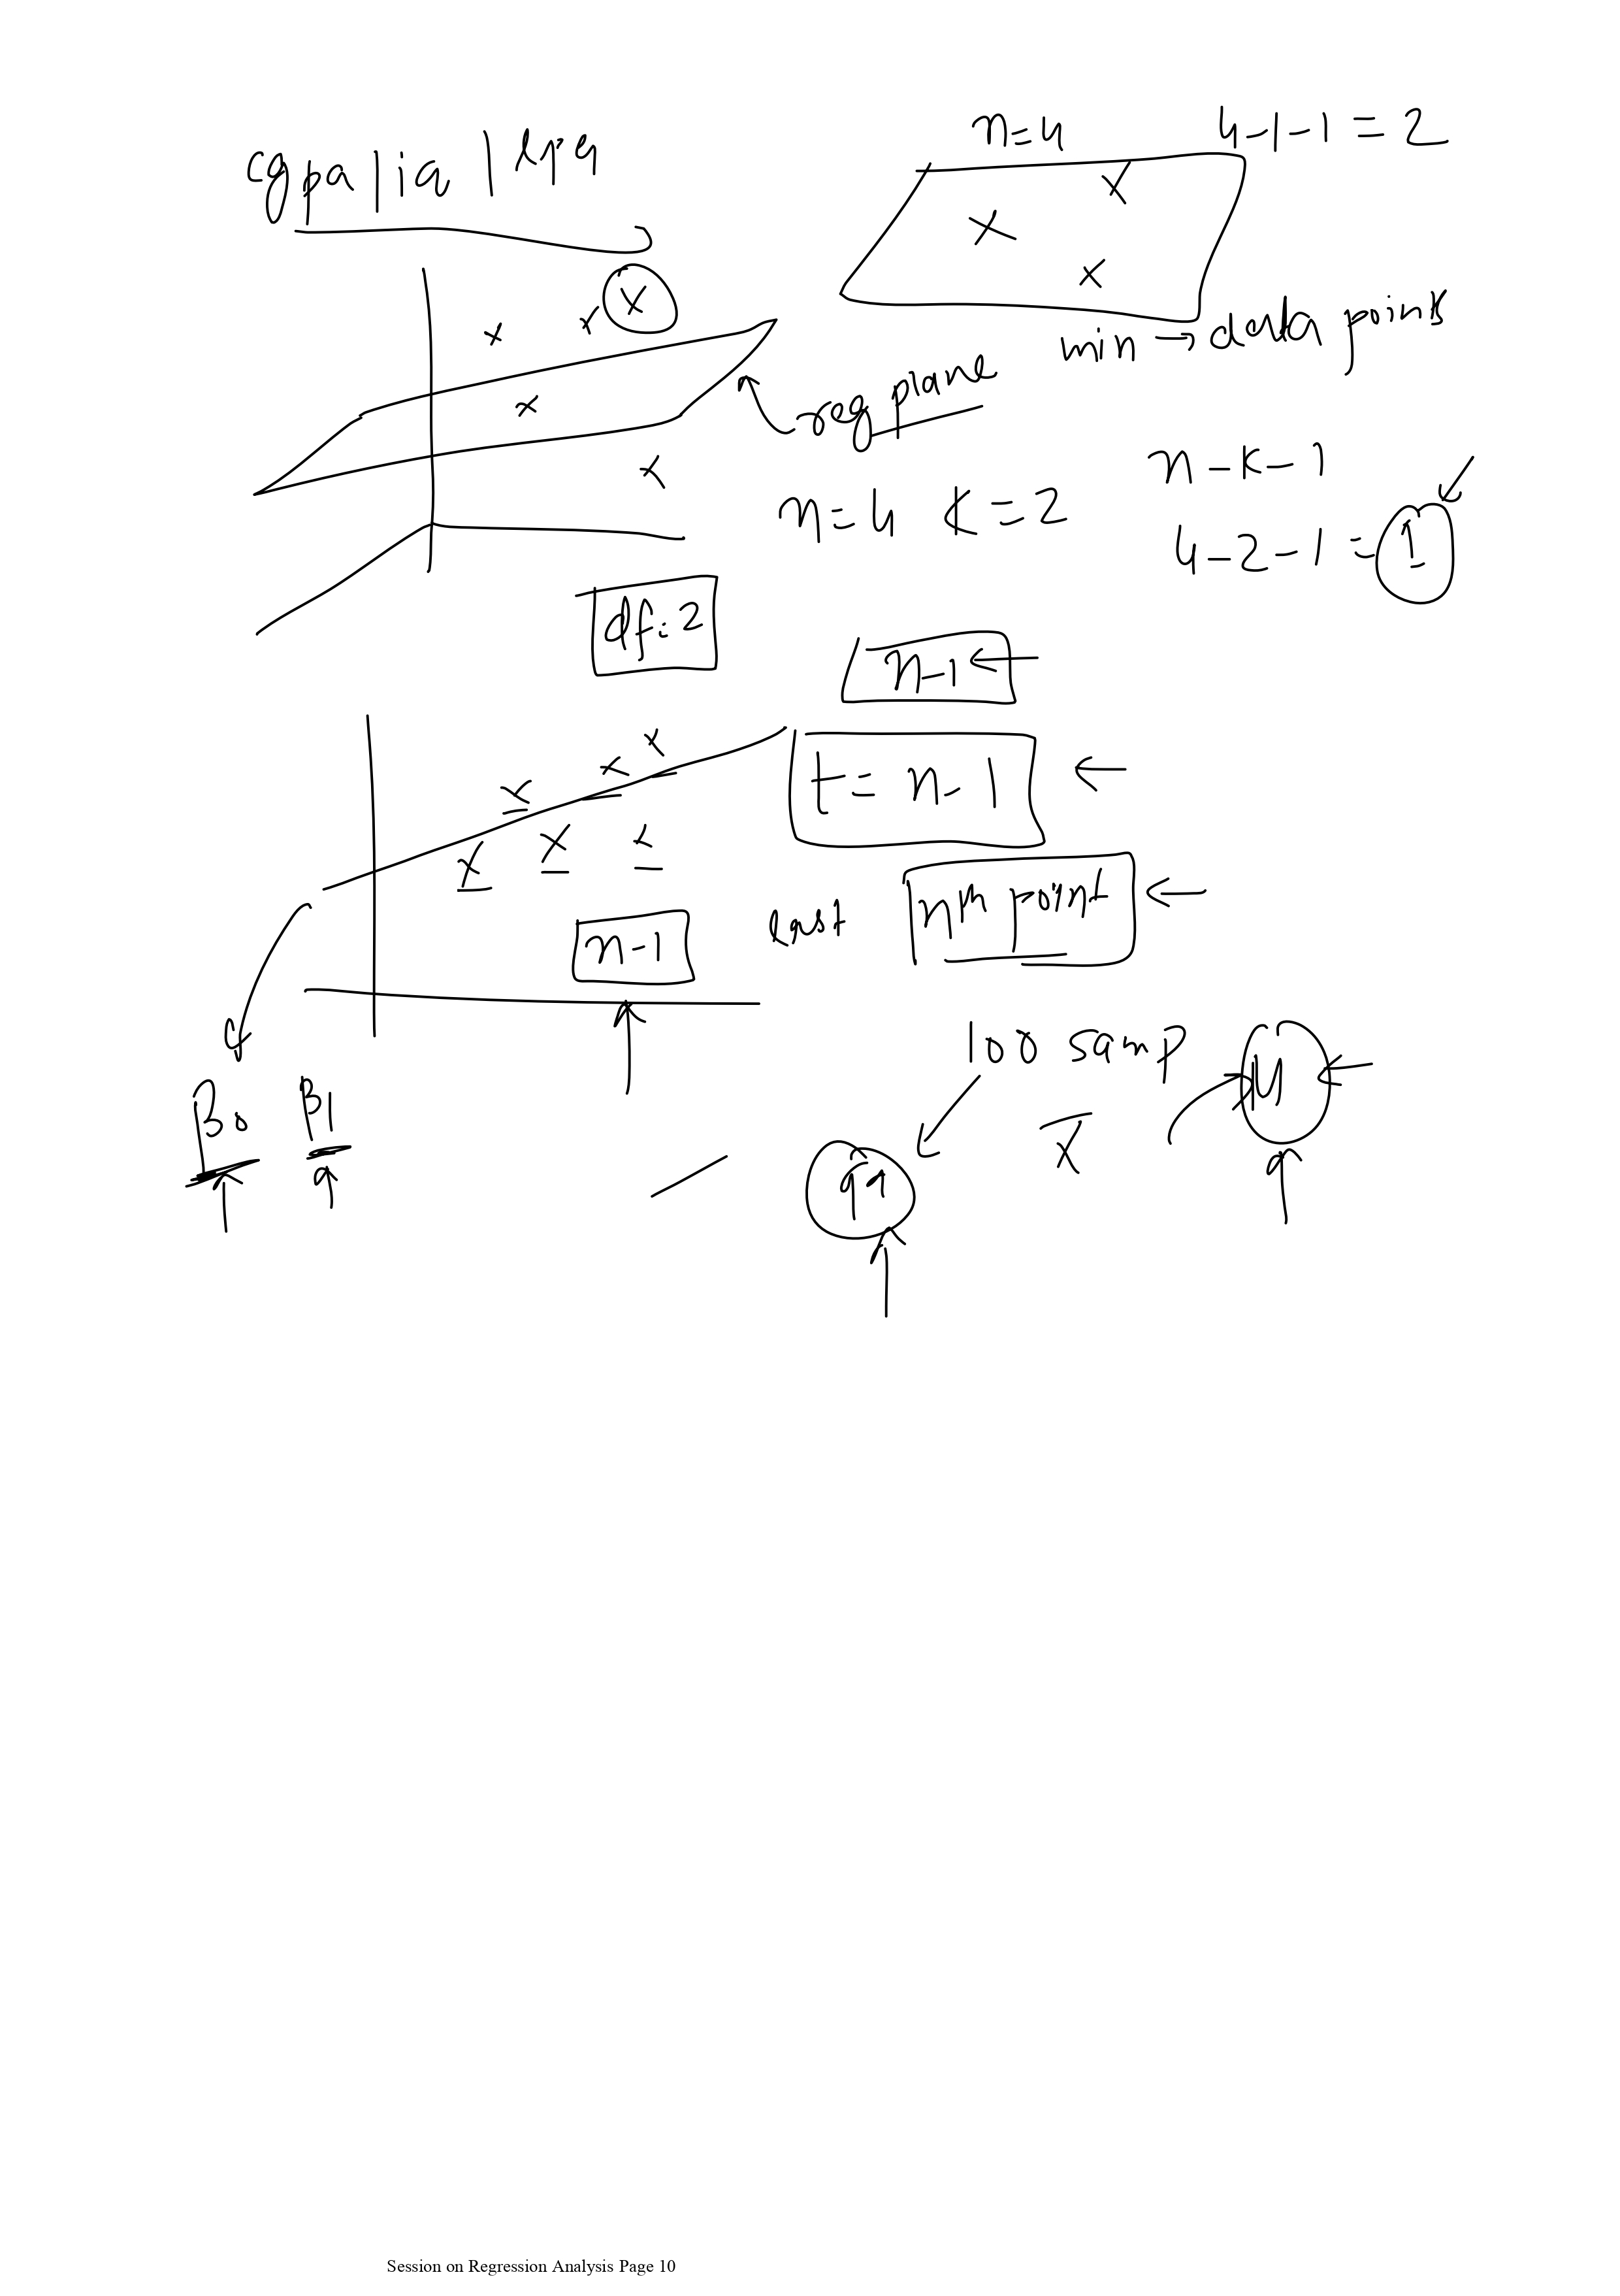 cgpa | iq | lpa
n=4
4-1-1 = 2
min → data points
reg plane
n-k-1
n=4 k=2
4-2-1 = 1
df: 2
n-1
t = n-1
n-1
last nth point
100 samp
μ
x̄
β0 β1
99
Session on Regression Analysis Page 10